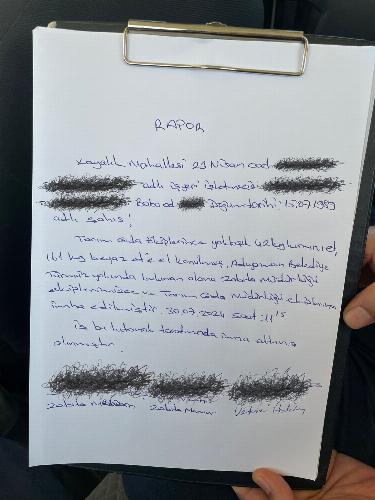 RAPOR
Kayalık Mahallesi 23 Nisan cad
adlı işyeri işletmecisi
Baba ad Doğum tarihi: 15.07.1989
adlı şahıs!
Tarım Gıda Ekiplerince yaklaşık 42 kg kırmızı et,
161 kg beyaz ete el konulmuş, Adıyaman Belediye
yolunda bulunan alana zabıta Müdürlüğü
ekiplerimizce ve Tarım Gıda Müdürlüğü ekiplerince
imha edilmiştir. 30.07.2024 saat: 11¹⁵
iş bu tutanak tarafımızca imza altına
alınmıştır.
Zabıta Zabıta Memur Veteriner